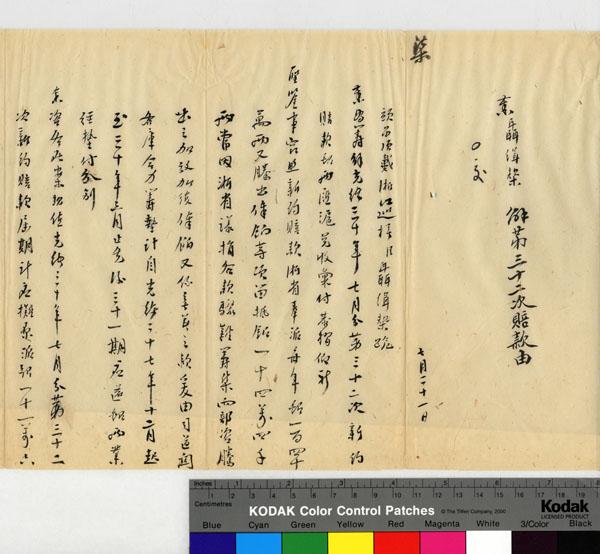 柒
奏 聶緝椝 解第三十二次賠款由
七月二十一日
頭品頂戴浙江巡撫臣聶緝椝跪
奏為籌解光緒三十年七月分第三十二次新約
賠款銀兩匯滬兌收彙付恭摺仰祈
聖鑒事竊照新約賠款浙省奉派每年銀一百四十
萬兩又騰出俸餉等項
兩當因浙省議捐各款驟難籌集
出之加放加復俸餉又仍之款爰由司道關
各庫合力籌墊計自光緒二十七年十二月起
至三十年六月止先後三十一期應還銀兩業
經墊付分別
奏咨各在案茲值光緒三十年七月分第三十二
次新約賠款屆期計應攤派銀一十一萬六
Inches 1 2 3 4 5 6 7 8
Centimetres 1 2 3 4 5 6 7 8 9 10 11 12 13 14 15 16 17 18 19
KODAK Color Control Patches © The Tiffen Company, 2000
Kodak
LICENSED PRODUCT
Blue Cyan Green Yellow Red Magenta White 3/Color Black